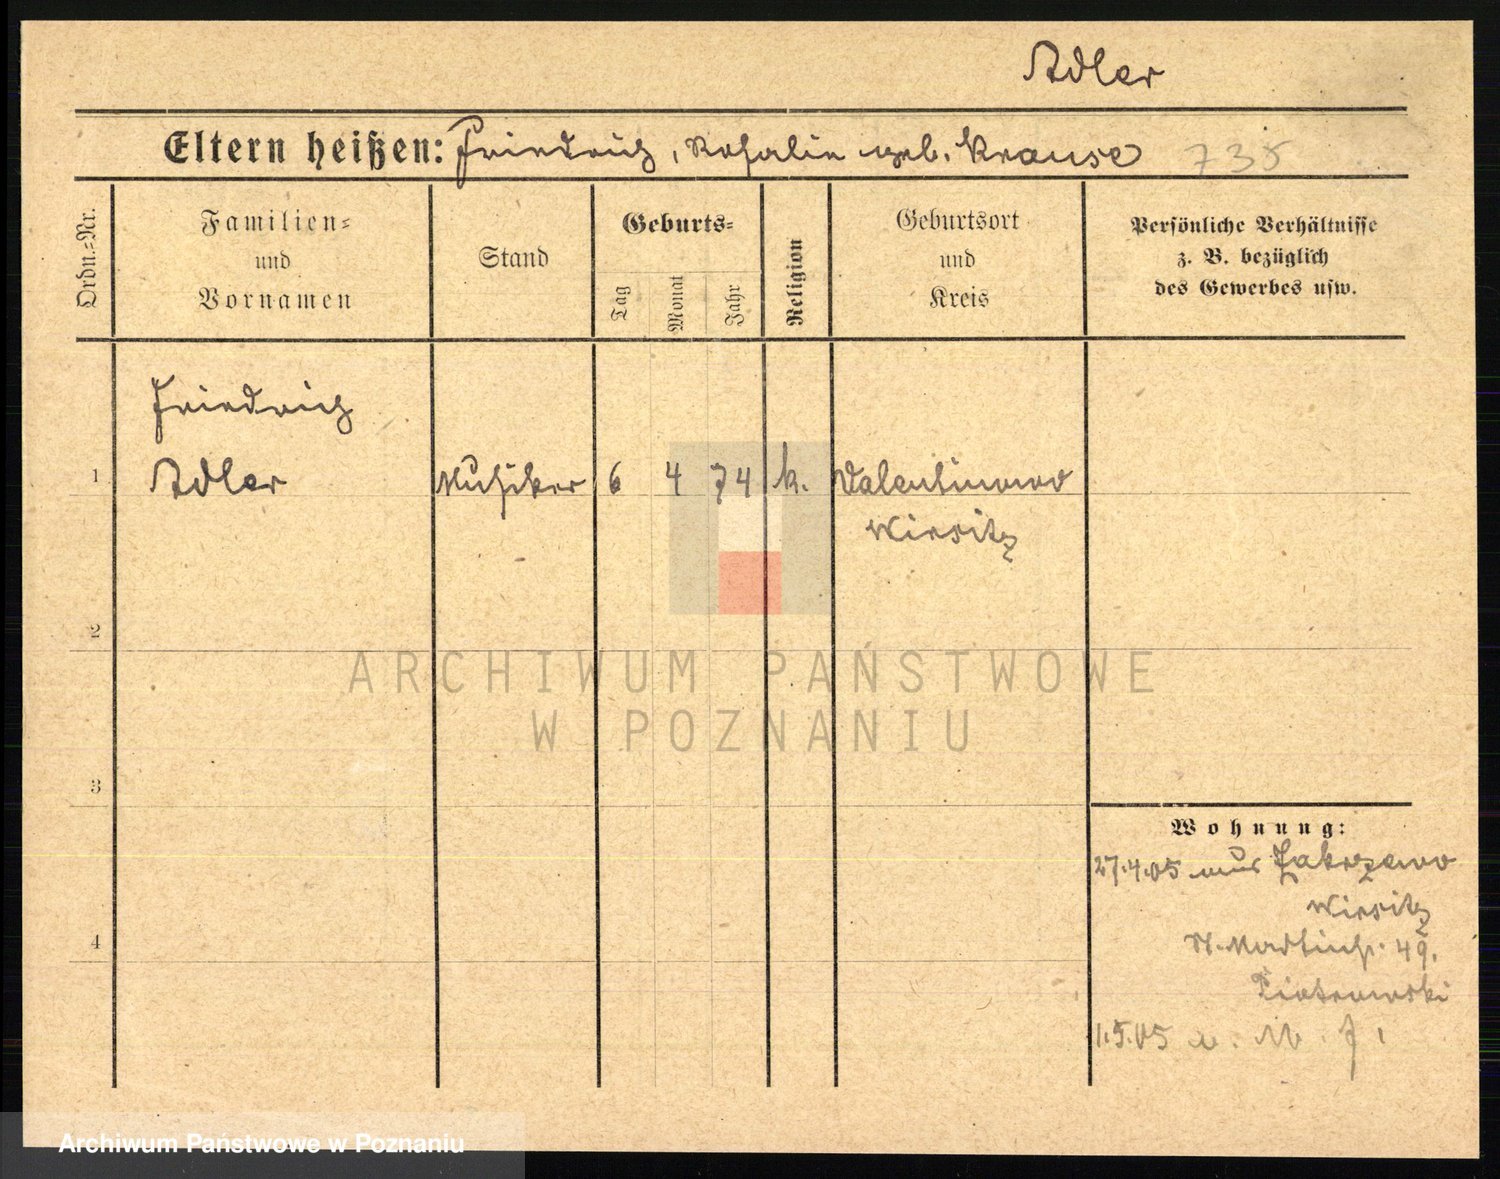 Adler
Eltern heißen: Friedrich, Rosalie geb. Krause 735
Ordn.=Nr.
Familien=
und
Vornamen
Stand
Geburts=
Tag
Monat
Jahr
Religion
Geburtsort
und
Kreis
Persönliche Verhältnisse
z. B. bezüglich
des Gewerbes usw.
Friedrich
1 Adler Musiker 6 4 74 k. Valentinowo
Wirsitz
2
ARCHIWUM PAŃSTWOWE
W POZNANIU
3
Wohnung:
27.4.05 aus Zakrzewo
Wirsitz
4
St. Martinstr. 49.
Piotrowski
1.5.05
Archiwum Państwowe w Poznaniu